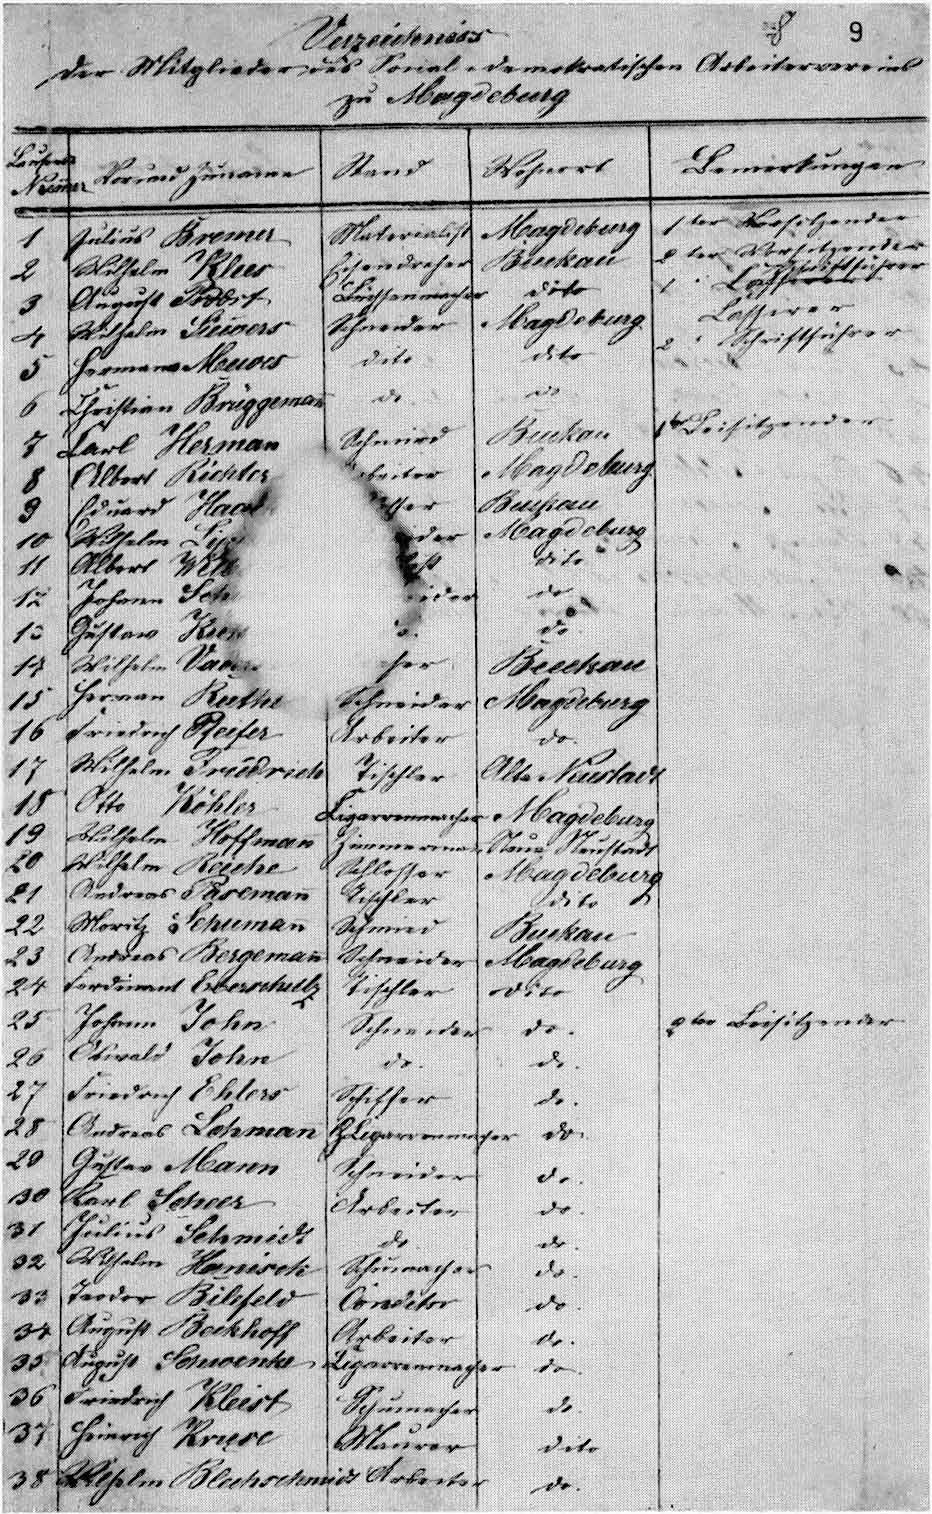 9
Verzeichniss
der Mitglieder des Social-demokratischen Arbeitervereins
zu Magdeburg
Laufende Nummer Vor und Zuname Stand Wohnort Bemerkungen
1 Julius Bremer Materialist Magdeburg 1ter Vorsitzender
2 Wilhelm Klees Eisendreher Buckau 2ter Vorsitzender
3 August Büchsenmacher dito 1 " Schriftführer
4 Wilhelm Sievers Schneider Magdeburg Cassierer
5 Hermann Meuves dito dito 2 " Schriftführer
6 Christian Brüggeman do. do
7 Carl Herman Schmied Buckau 1ter Beisitzender
8 Albert Richter Magdeburg
9 Eduard Buckau
10 Wilhelm Magdeburg
11 Albert dito
12 Johann do
13 Gustav do
14 Wilhelm Buckau
15 Herman Ruthe Schneider Magdeburg
16 Friedrich Pfeifer Arbeiter do.
17 Wilhelm Friedrich Tischler Alte Neustadt
18 Otto Köhler Cigarrenmacher Magdeburg
19 Wilhelm Hoffman Zimmerman Neue Neustadt
20 Wilhelm Reiche Schlosser Magdeburg
21 Andreas Paseman Tischler dito
22 Moritz Schuman Schmied Buckau
23 Andreas Bergeman Schneider Magdeburg
24 Ferdinant Tischler dito
25 Johann John Schneider do. 2ter Beisitzender
26 Oswald John do. do.
27 Friedrich Ehlers Schiffer do.
28 Andreas Lohman Cigarrenmacher do.
29 Gustav Mann Schneider do.
30 Karl Scheer Arbeiter do.
31 Julius Schmidt do do.
32 Wilhelm Hanisch Schumacher do.
33 Teodor Bilsfeld Conditor do.
34 August Bockhoff Arbeiter do.
35 August Schwenke Cigarrenmacher do.
36 Friedrich Kleist Schumacher do.
37 Heinrich Kruse Maurer dito
38 Wilhelm Blechschmidt Arbeiter do.